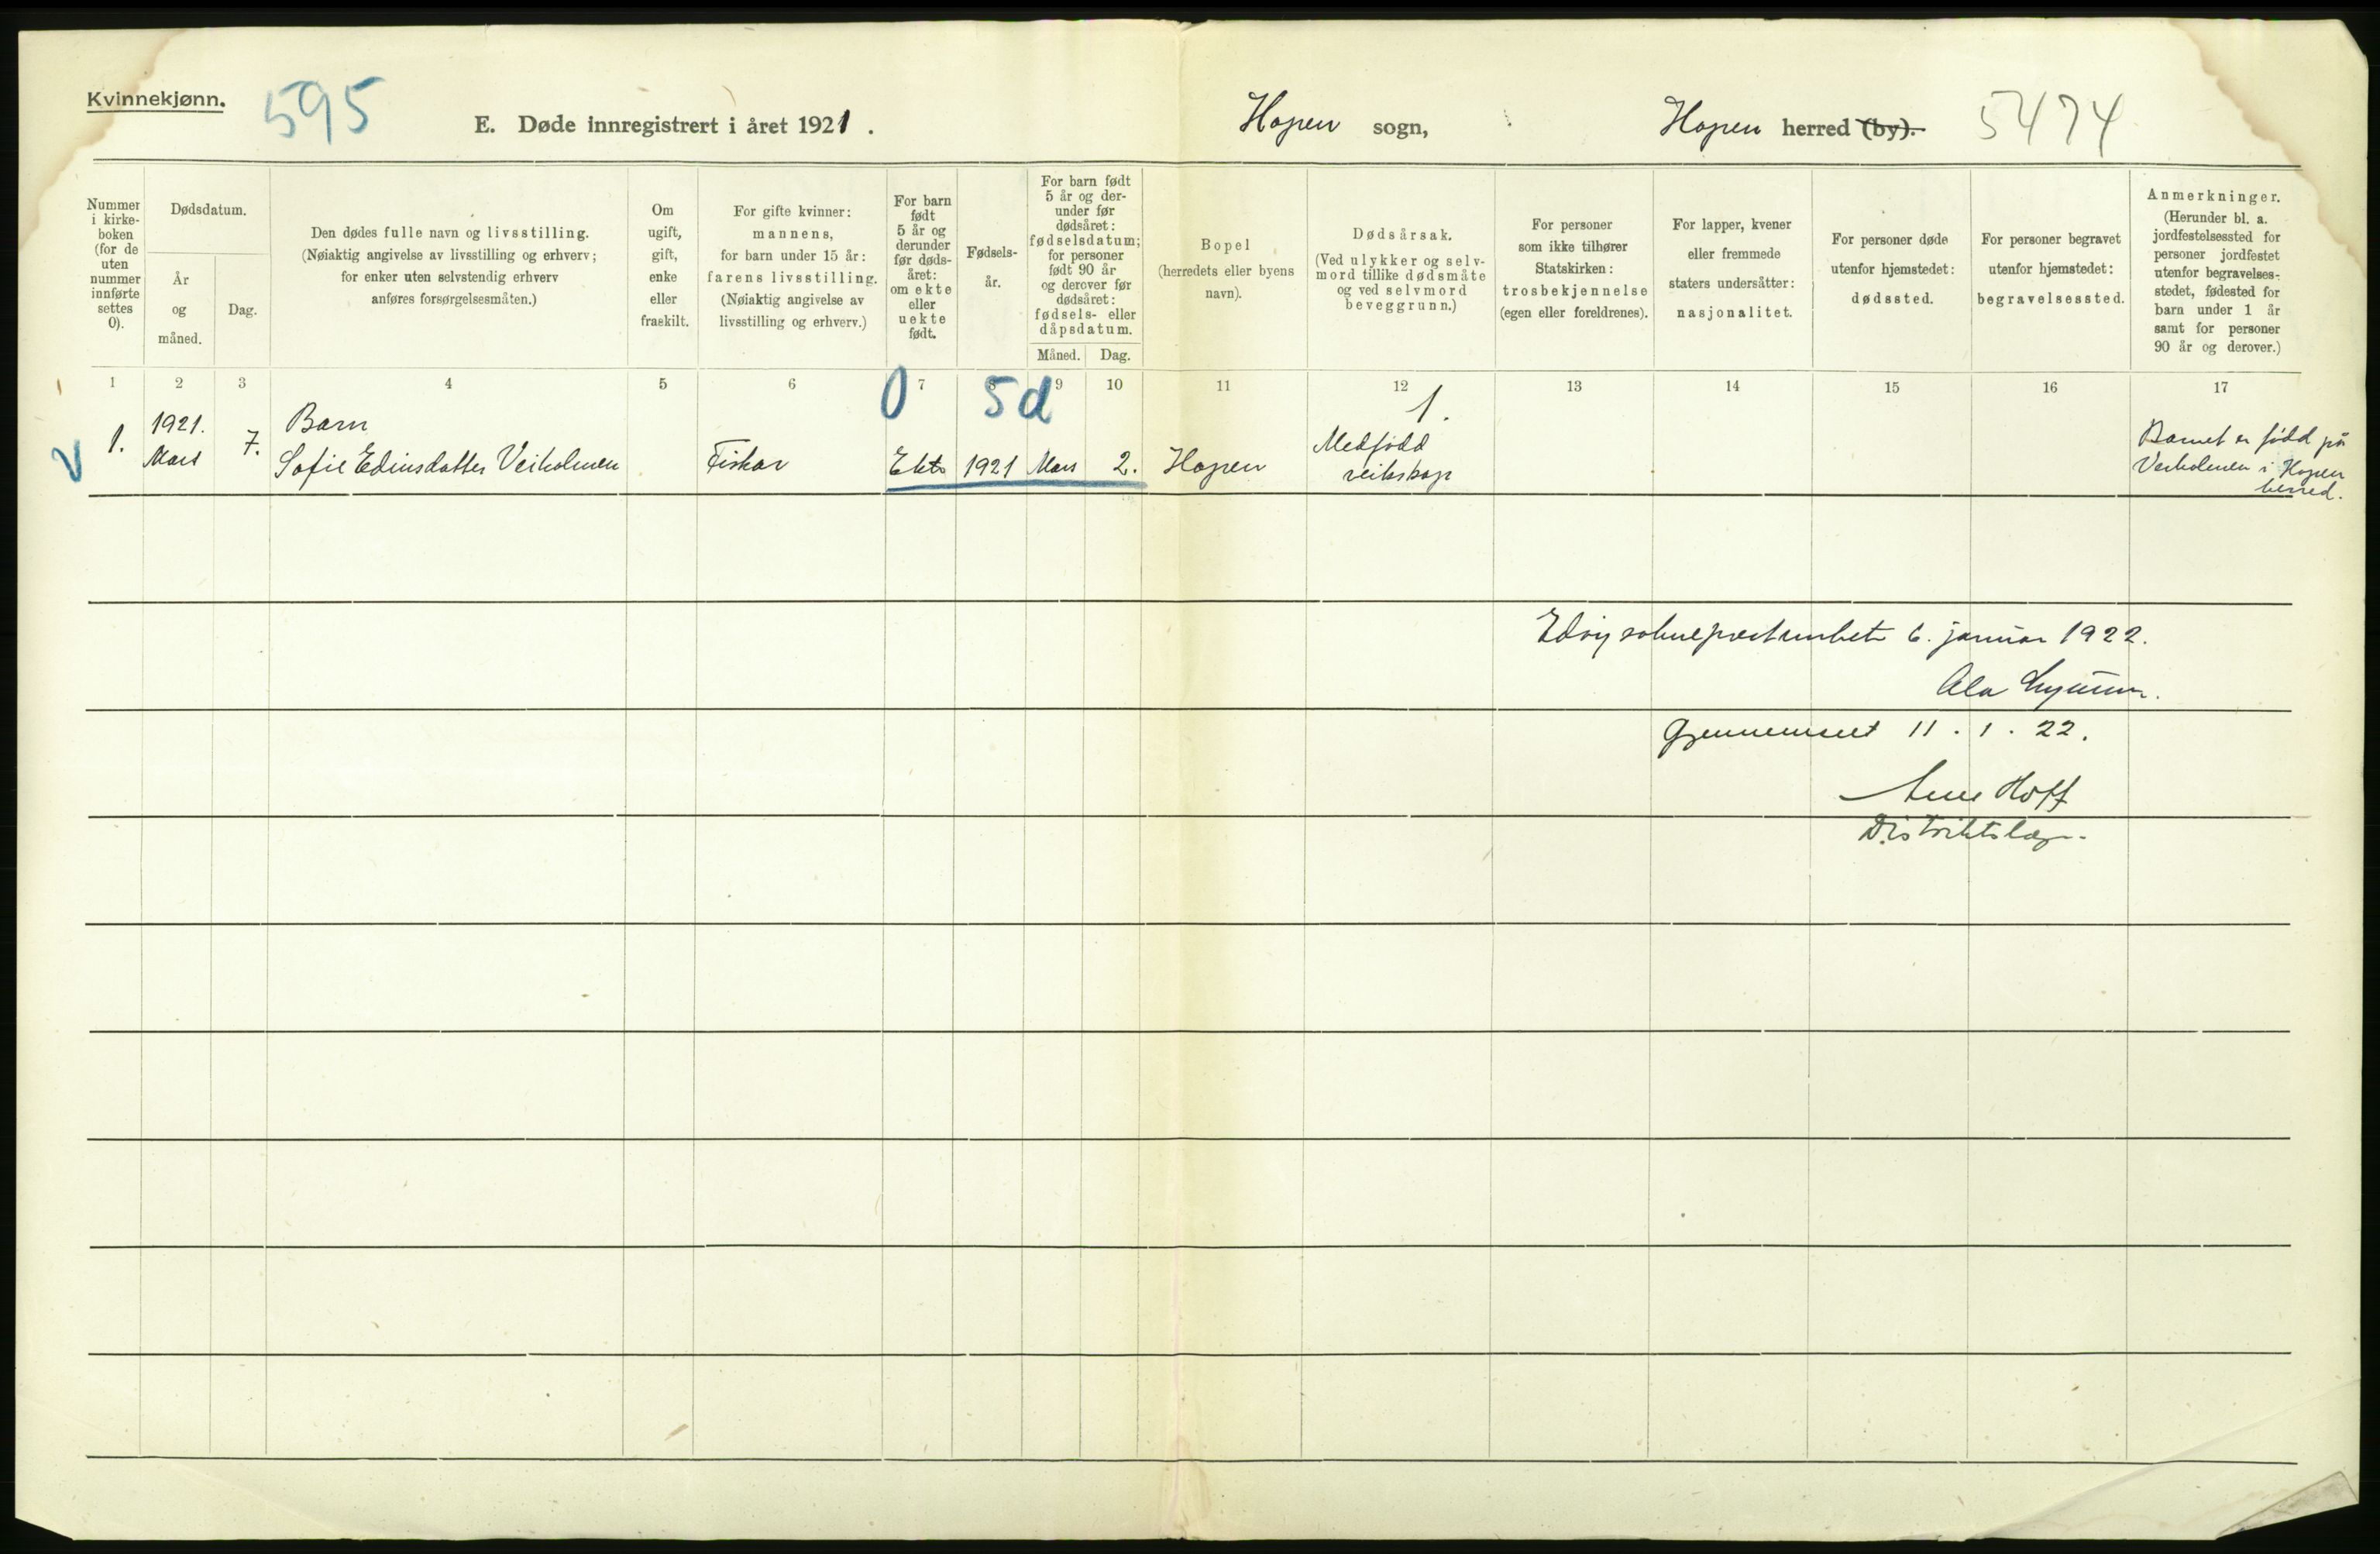 Kvinnekjønn.
595
E. Døde innregistrert i året 1921.
Hopen sogn,
Hopen herred (by).
5474
Nummer
i kirke-
boken
(for de
uten
nummer
innførte
settes
0).
Dødsdatum.
År
og
måned.
Dag.
Den dødes fulle navn og livsstilling.
(Nøiaktig angivelse av livsstilling og erhverv;
for enker uten selvstendig erhverv
anføres forsørgelsesmåten.)
Om
ugift,
gift,
enke
eller
fraskilt.
For gifte kvinner:
mannens,
for barn under 15 år:
farens livsstilling.
(Nøiaktig angivelse av
livsstilling og erhverv.)
For barn
født
5 år og
derunder
før døds-
året:
om ekte
eller
uekte
født.
Fødsels-
år.
For barn født
5 år og der-
under før
dødsåret:
fødselsdatum;
for personer
født 90 år
og derover før
dødsåret:
fødsels- eller
dåpsdatum.
Måned.
Dag.
Bopel
(herredets eller byens
navn).
Dødsårsak.
(Ved ulykker og selv-
mord tillike dødsmåte
og ved selvmord
beveggrunn.)
For personer
som ikke tilhører
Statskirken:
trosbekjennelse
(egen eller foreldrenes).
For lapper, kvener
eller fremmede
staters undersåtter:
nasjonalitet.
For personer døde
utenfor hjemstedet:
dødssted.
For personer begravet
utenfor hjemstedet:
begravelsessted.
Anmerkninger.
(Herunder bl. a.
jordfestelsessted for
personer jordfestet
utenfor begravelses-
stedet, fødested for
barn under 1 år
samt for personer
90 år og derover.)
1 2 3 4 5 6 7 8 9 10 11 12 13 14 15 16 17
0 5d
1.
1.
1921.
Mars
7.
Barn
Sofie Edinsdatter Veiholmen
Fiskar
Ekte
1921
Mars
2.
Hopen
Medfödd
veikskap
Barnet er född på
Veiholmen i Hopen
herred.
Edöy sokneprestembete 6. januar 1922.
Gjennemseet 11.1.22.
Hoff
Distriktslæge.